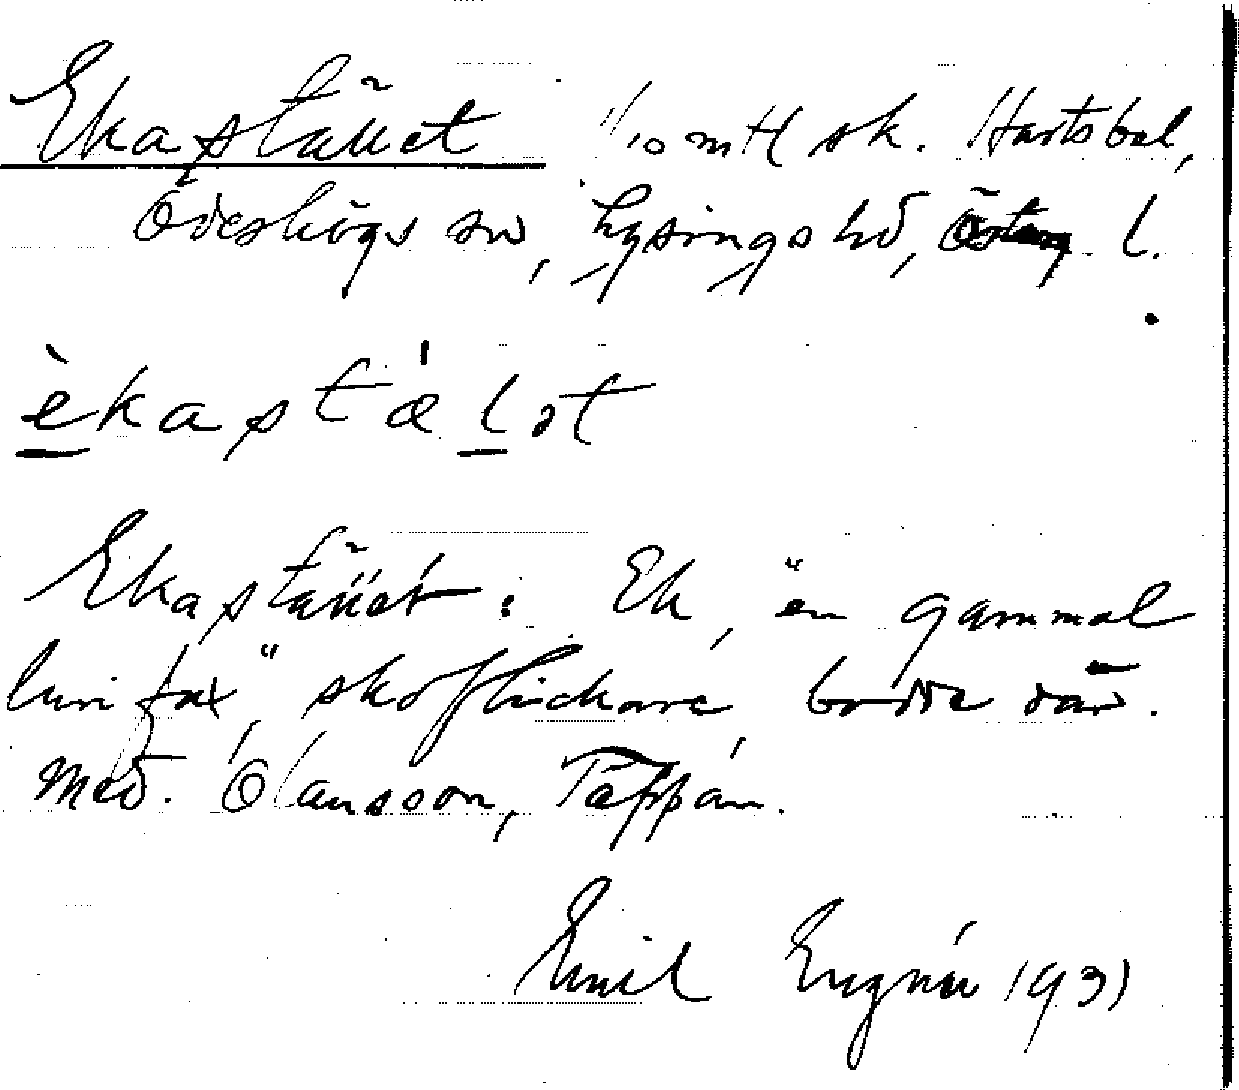 Ekastället 1/10 mtl sk. Hartsbol,
Ödeshögs sn, Lysings hd, Österg. l.
èkastælət
Ekastället: Ek, "en gammal
lurifax", skoflickare, bodde där.
Med. Olausson, Täppan.
Emil 1931